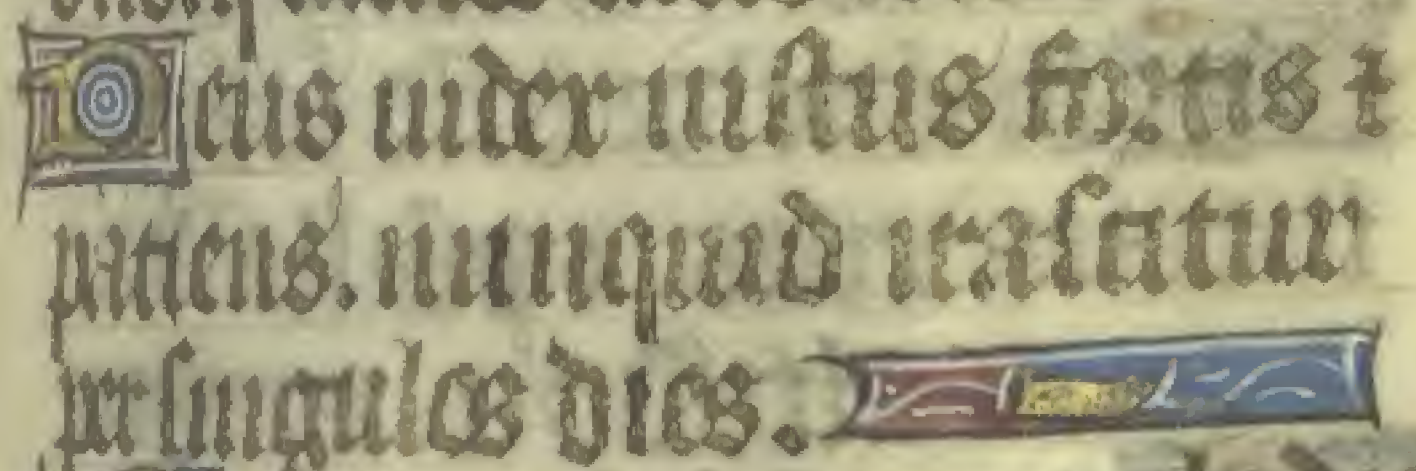 Deus iudex iustus fortis ⁊
patiens. nunquid irascatur
per singulos dies.